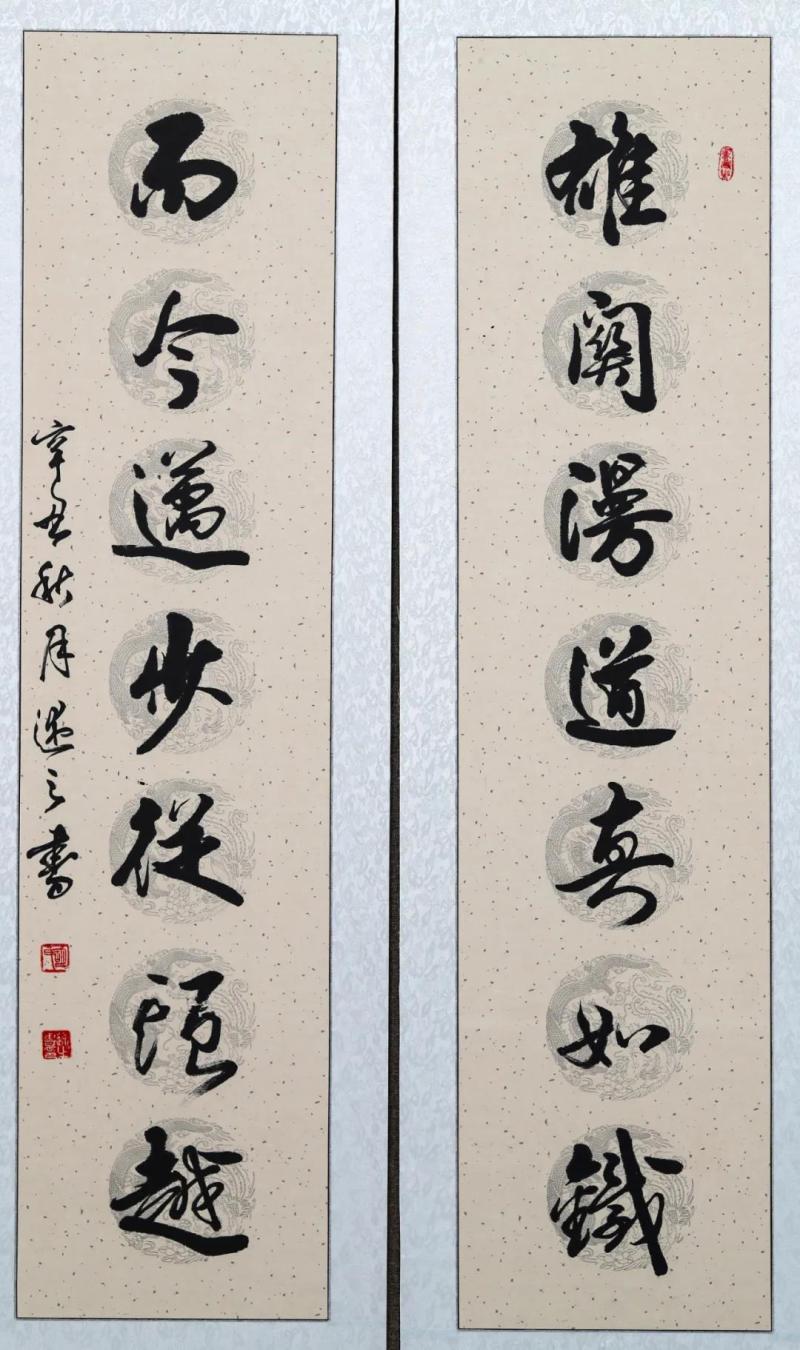 雄關漫道真如鐵
而今邁步從頭越
辛丑秋月遜之書